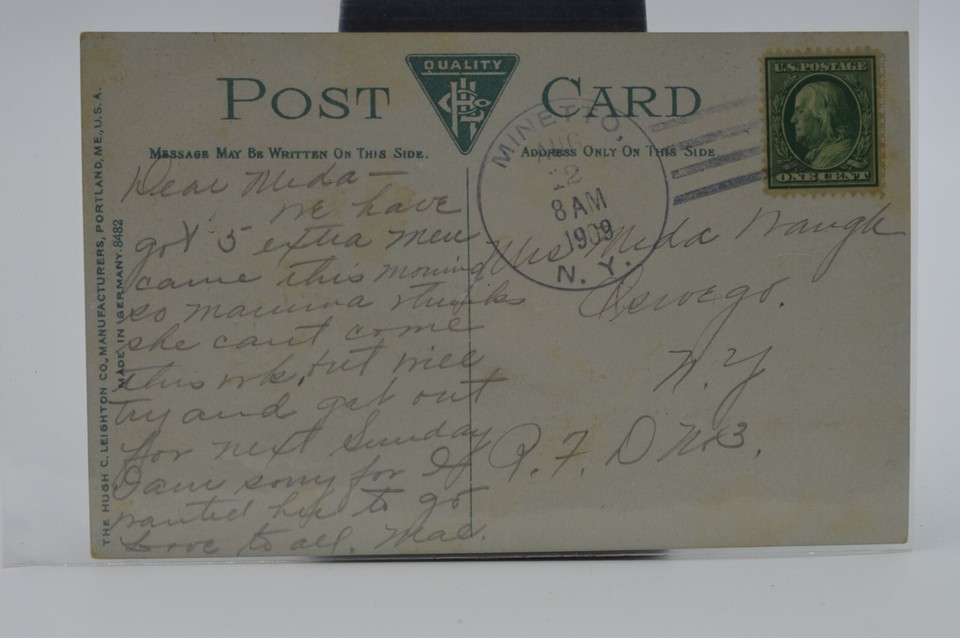 QUALITY
POST CARD
MESSAGE MAY BE WRITTEN ON THIS SIDE.
ADDRESS ONLY ON THIS SIDE
U.S. POSTAGE
ONE CENT
MINETTO,
AUG
12
8 AM
1909
N. Y.
THE HUGH C. LEIGHTON CO., MANUFACTURERS, PORTLAND, ME., U.S.A.
MADE IN GERMANY. 8482
Dear Meda —
we have
got 5 extra men
came this morning
so mamma thinks
she cant come
this wk, but will
try and get out
for next Sunday
I am sorry for I
wanted her to go
Love to all. Mae.
Mrs Meda Waugh
Oswego.
N. Y
R. F. D No 3.